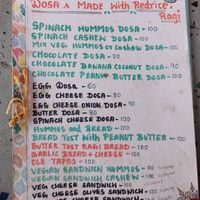 DOSA s MADE With Redrice, Ragi
SPINACH HUMMOS DOSA - 100
SPINACH CASHEW DOSA - 100
MIX VEG HUMMOS OY CASHEW DOSA - 100
CHOCOLATE DOSA - 70
CHOCOLATE BANANA COCONUT DOSA - 90
CHOCOLATE PEANUT BUTTER DOSA - 80
EGG DOSA - 60
EGG CHEESE DOSA - 80
EGG CHEESE ONION DOSA - 90
BUTTER DOSA - 80
SPINACH CHEESE DOSA - 100
HUMMOS and BREAD - 100
BREAD TOST WITH PEANUT BUTTER - 100
BUTTER TOST RAGI BREAD - 100
GARLIC BREAD + CHEESE - 100
OLE TAPAS - 120
VEGAN SANDWICH HUMMOS - 120
VEGAN SANDWICH CASHEW - 130
VEG CHEESE SANDWICH - 100
VEG CHEESE OLIVES SANDWICH - 150